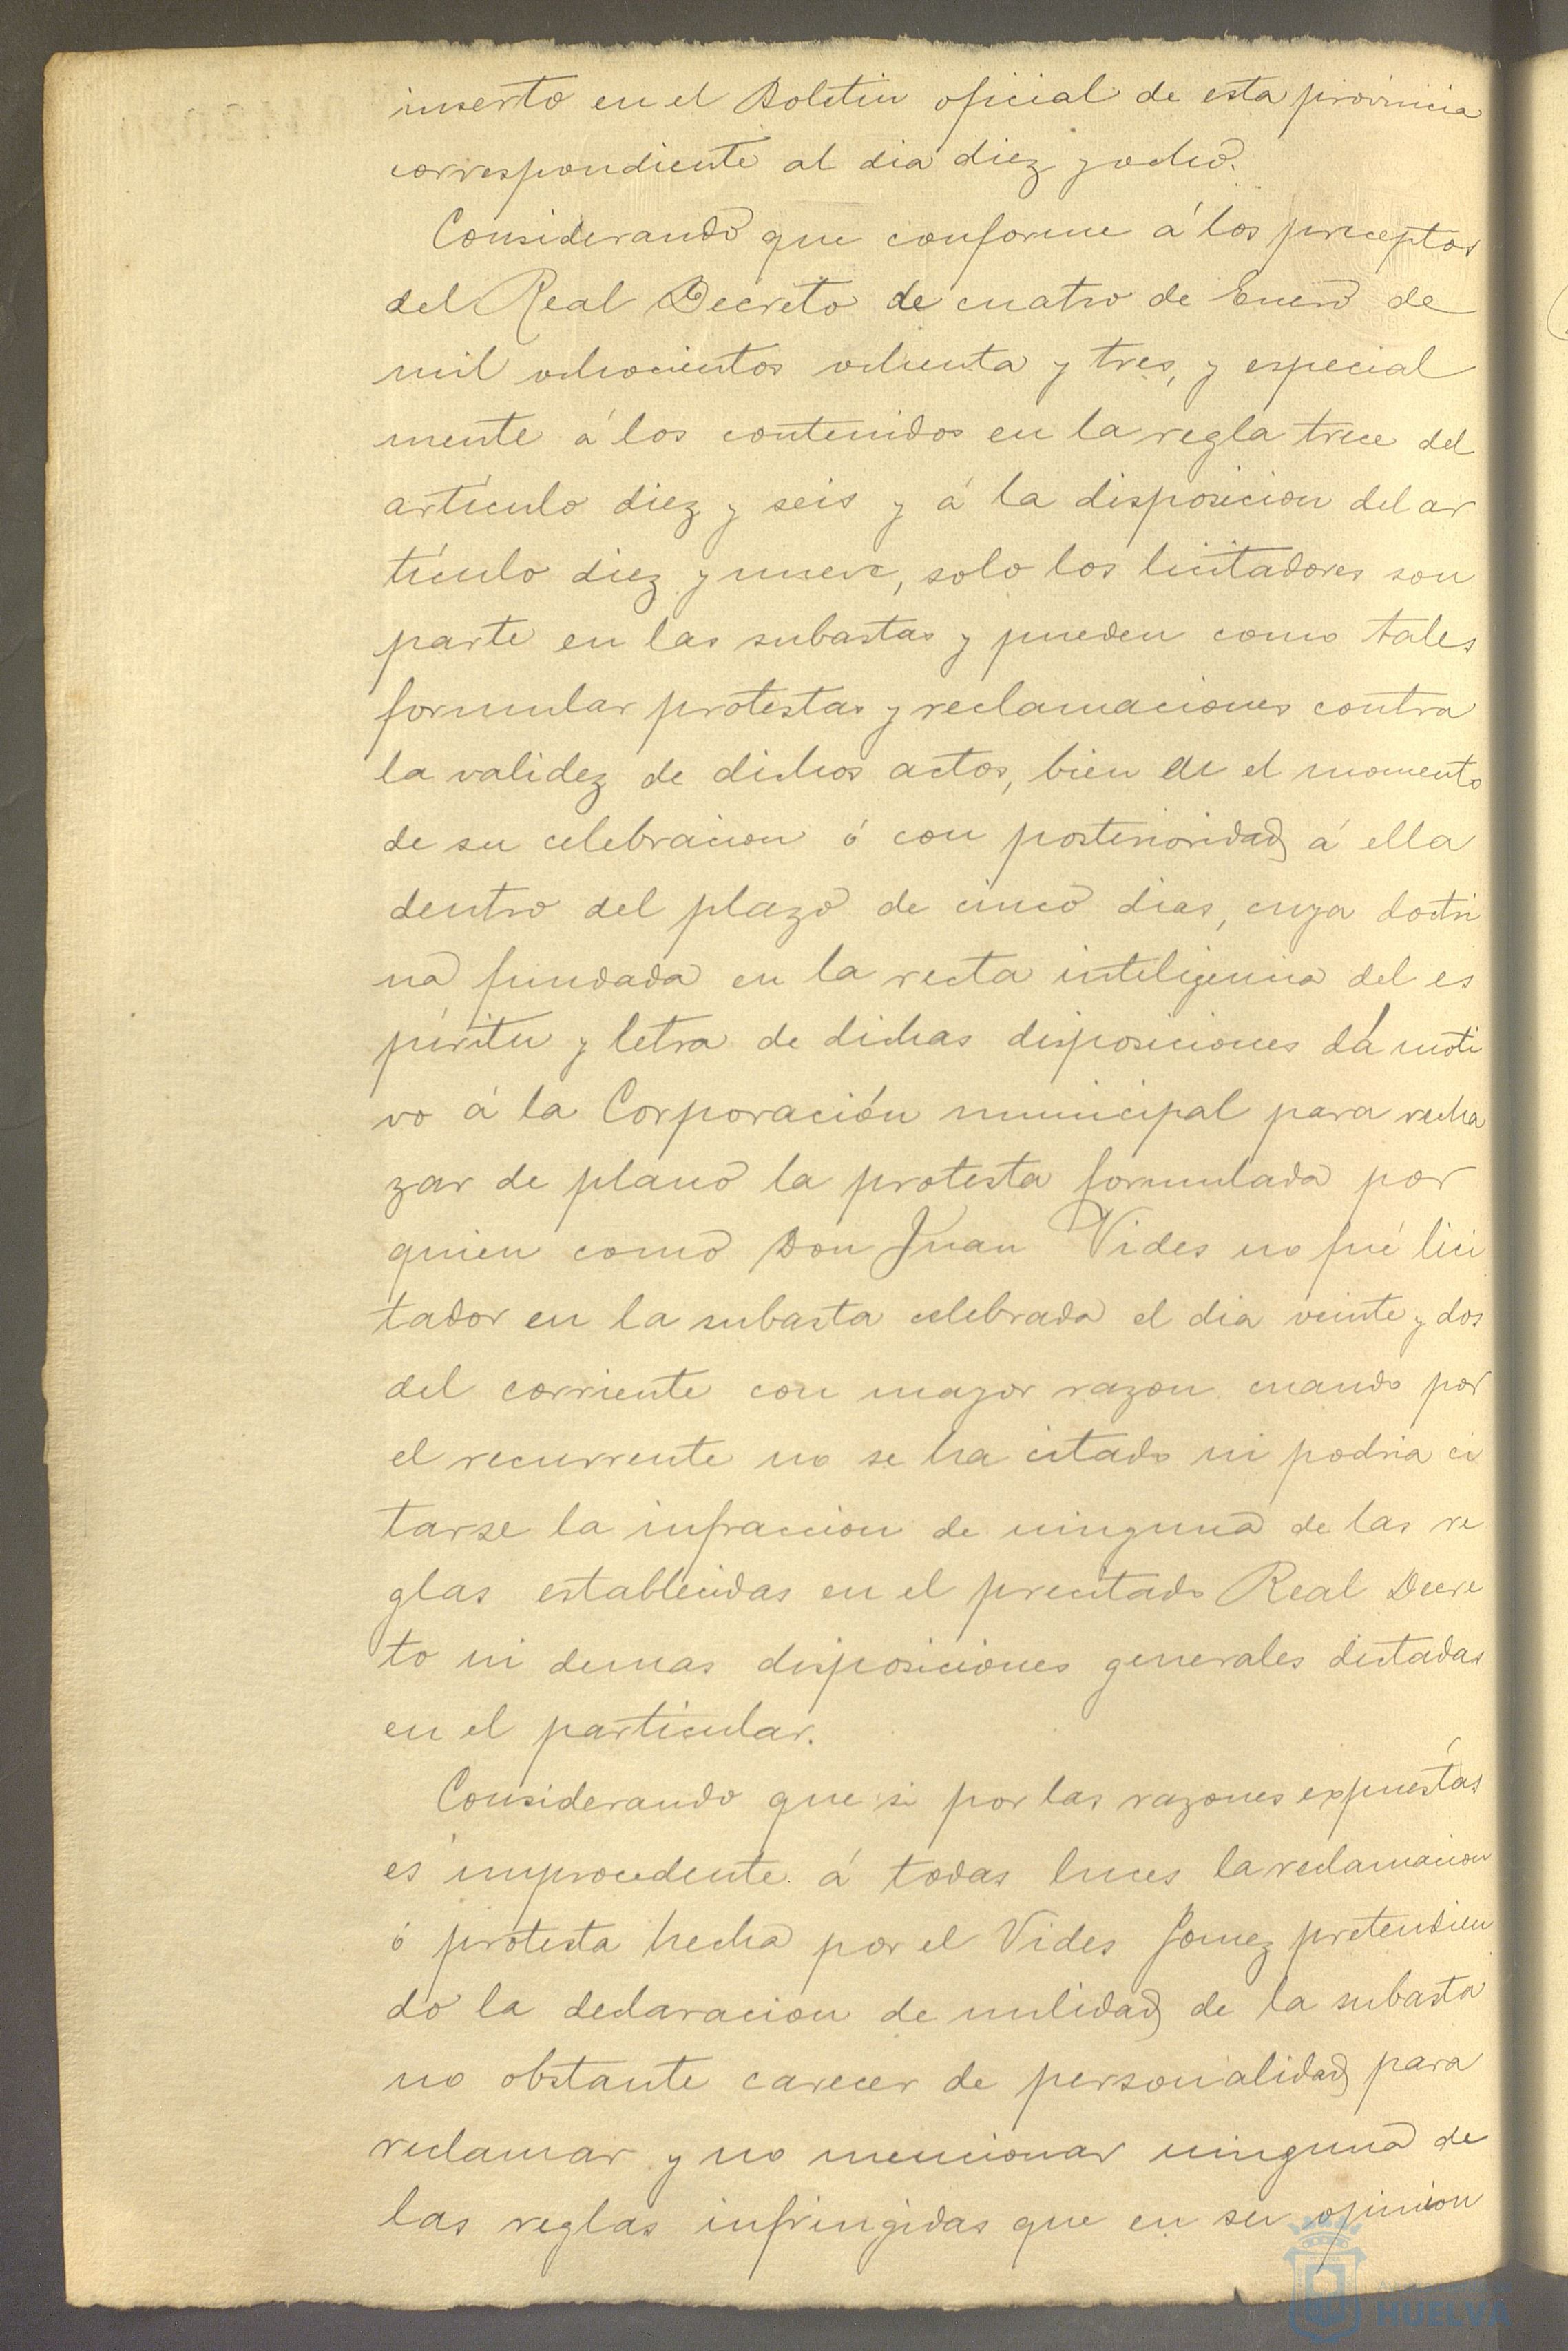 inserto en el Boletin oficial de esta provincia
correspondiente al dia diez y ocho.
Considerando que conforme á los preceptos
del Real Decreto de cuatro de Enero de
mil ochocientos ochenta y tres, y especial
mente á los contenidos en la regla trece del
artículo diez y seis y á la disposicion del ar
tículo diez y nueve, solo los licitadores son
parte en las subastas y pueden como tales
formular protestas y reclamaciones contra
la validez de dichos actos, bien en el momento
de su celebracion ó con posterioridad á ella
dentro del plazo de cinco dias, cuya doctri
na fundada en la recta inteligencia del es
píritu y letra de dichas disposiciones dá moti
vo á la Corporación municipal para recha
zar de plano la protesta formulada por
quien como Don Juan Vides no fué lici
tador en la subasta celebrada el dia veinte y dos
del corriente con mayor razon cuando por
el recurrente no se ha citado ni podria ci
tarse la infraccion de ninguna de las re
glas establecidas en el precitado Real Decre
to ni demas disposiciones generales dictadas
en el particular.
Considerando que si por las razones expuestas
es improcedente á todas luces la reclamacion
ó protesta hecha por el Vides Gomez pretendien
do la declaracion de nulidad de la subasta
no obstante carecer de personalidad para
reclamar y no mencionar ninguna de
las reglas infringidas que en su opinion
HUELVA